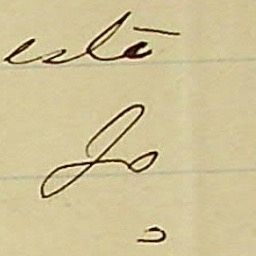 está
Jo